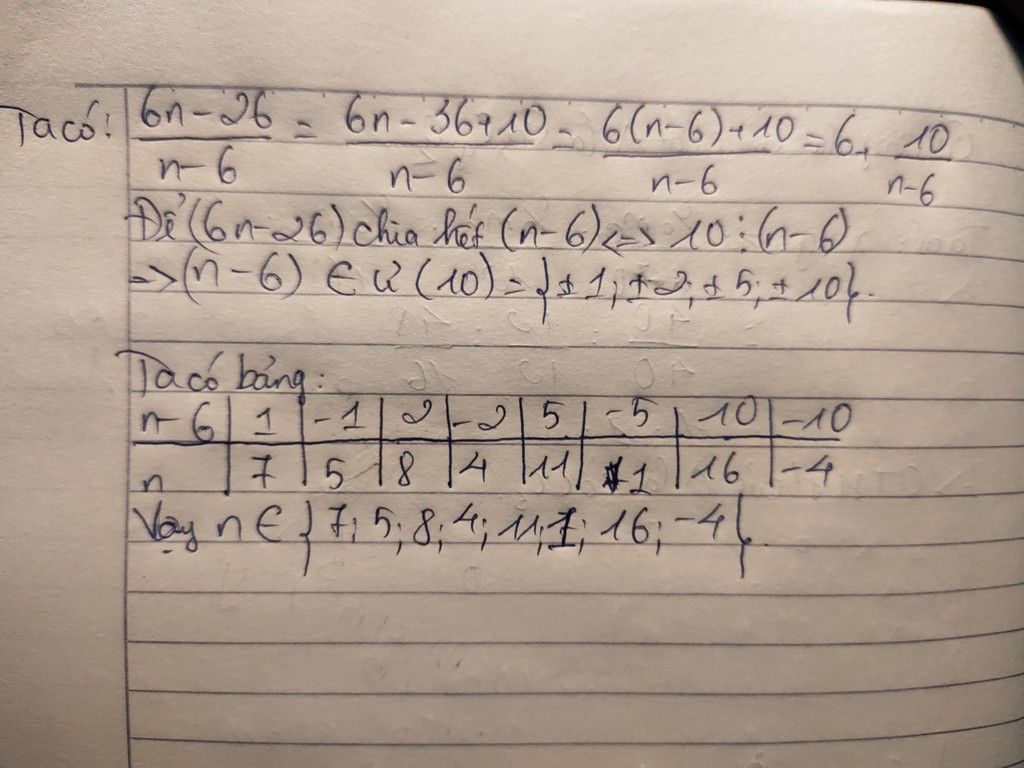 Ta có: 6n-26/n-6 = 6n-36+10/n-6 = 6(n-6)+10/n-6 = 6+ 10/n-6
Để (6n-26) chia hết (n-6) <=> 10⋮(n-6)
=> (n-6) ∈ Ư(10) = {±1; ±2; ±5; ±10}.
Ta có bảng:
n-6 | 1 | -1 | 2 | -2 | 5 | -5 | 10 | -10
n | 7 | 5 | 8 | 4 | 11 | 1 | 16 | -4
Vậy n ∈ {7; 5; 8; 4; 11; 1; 16; -4}.